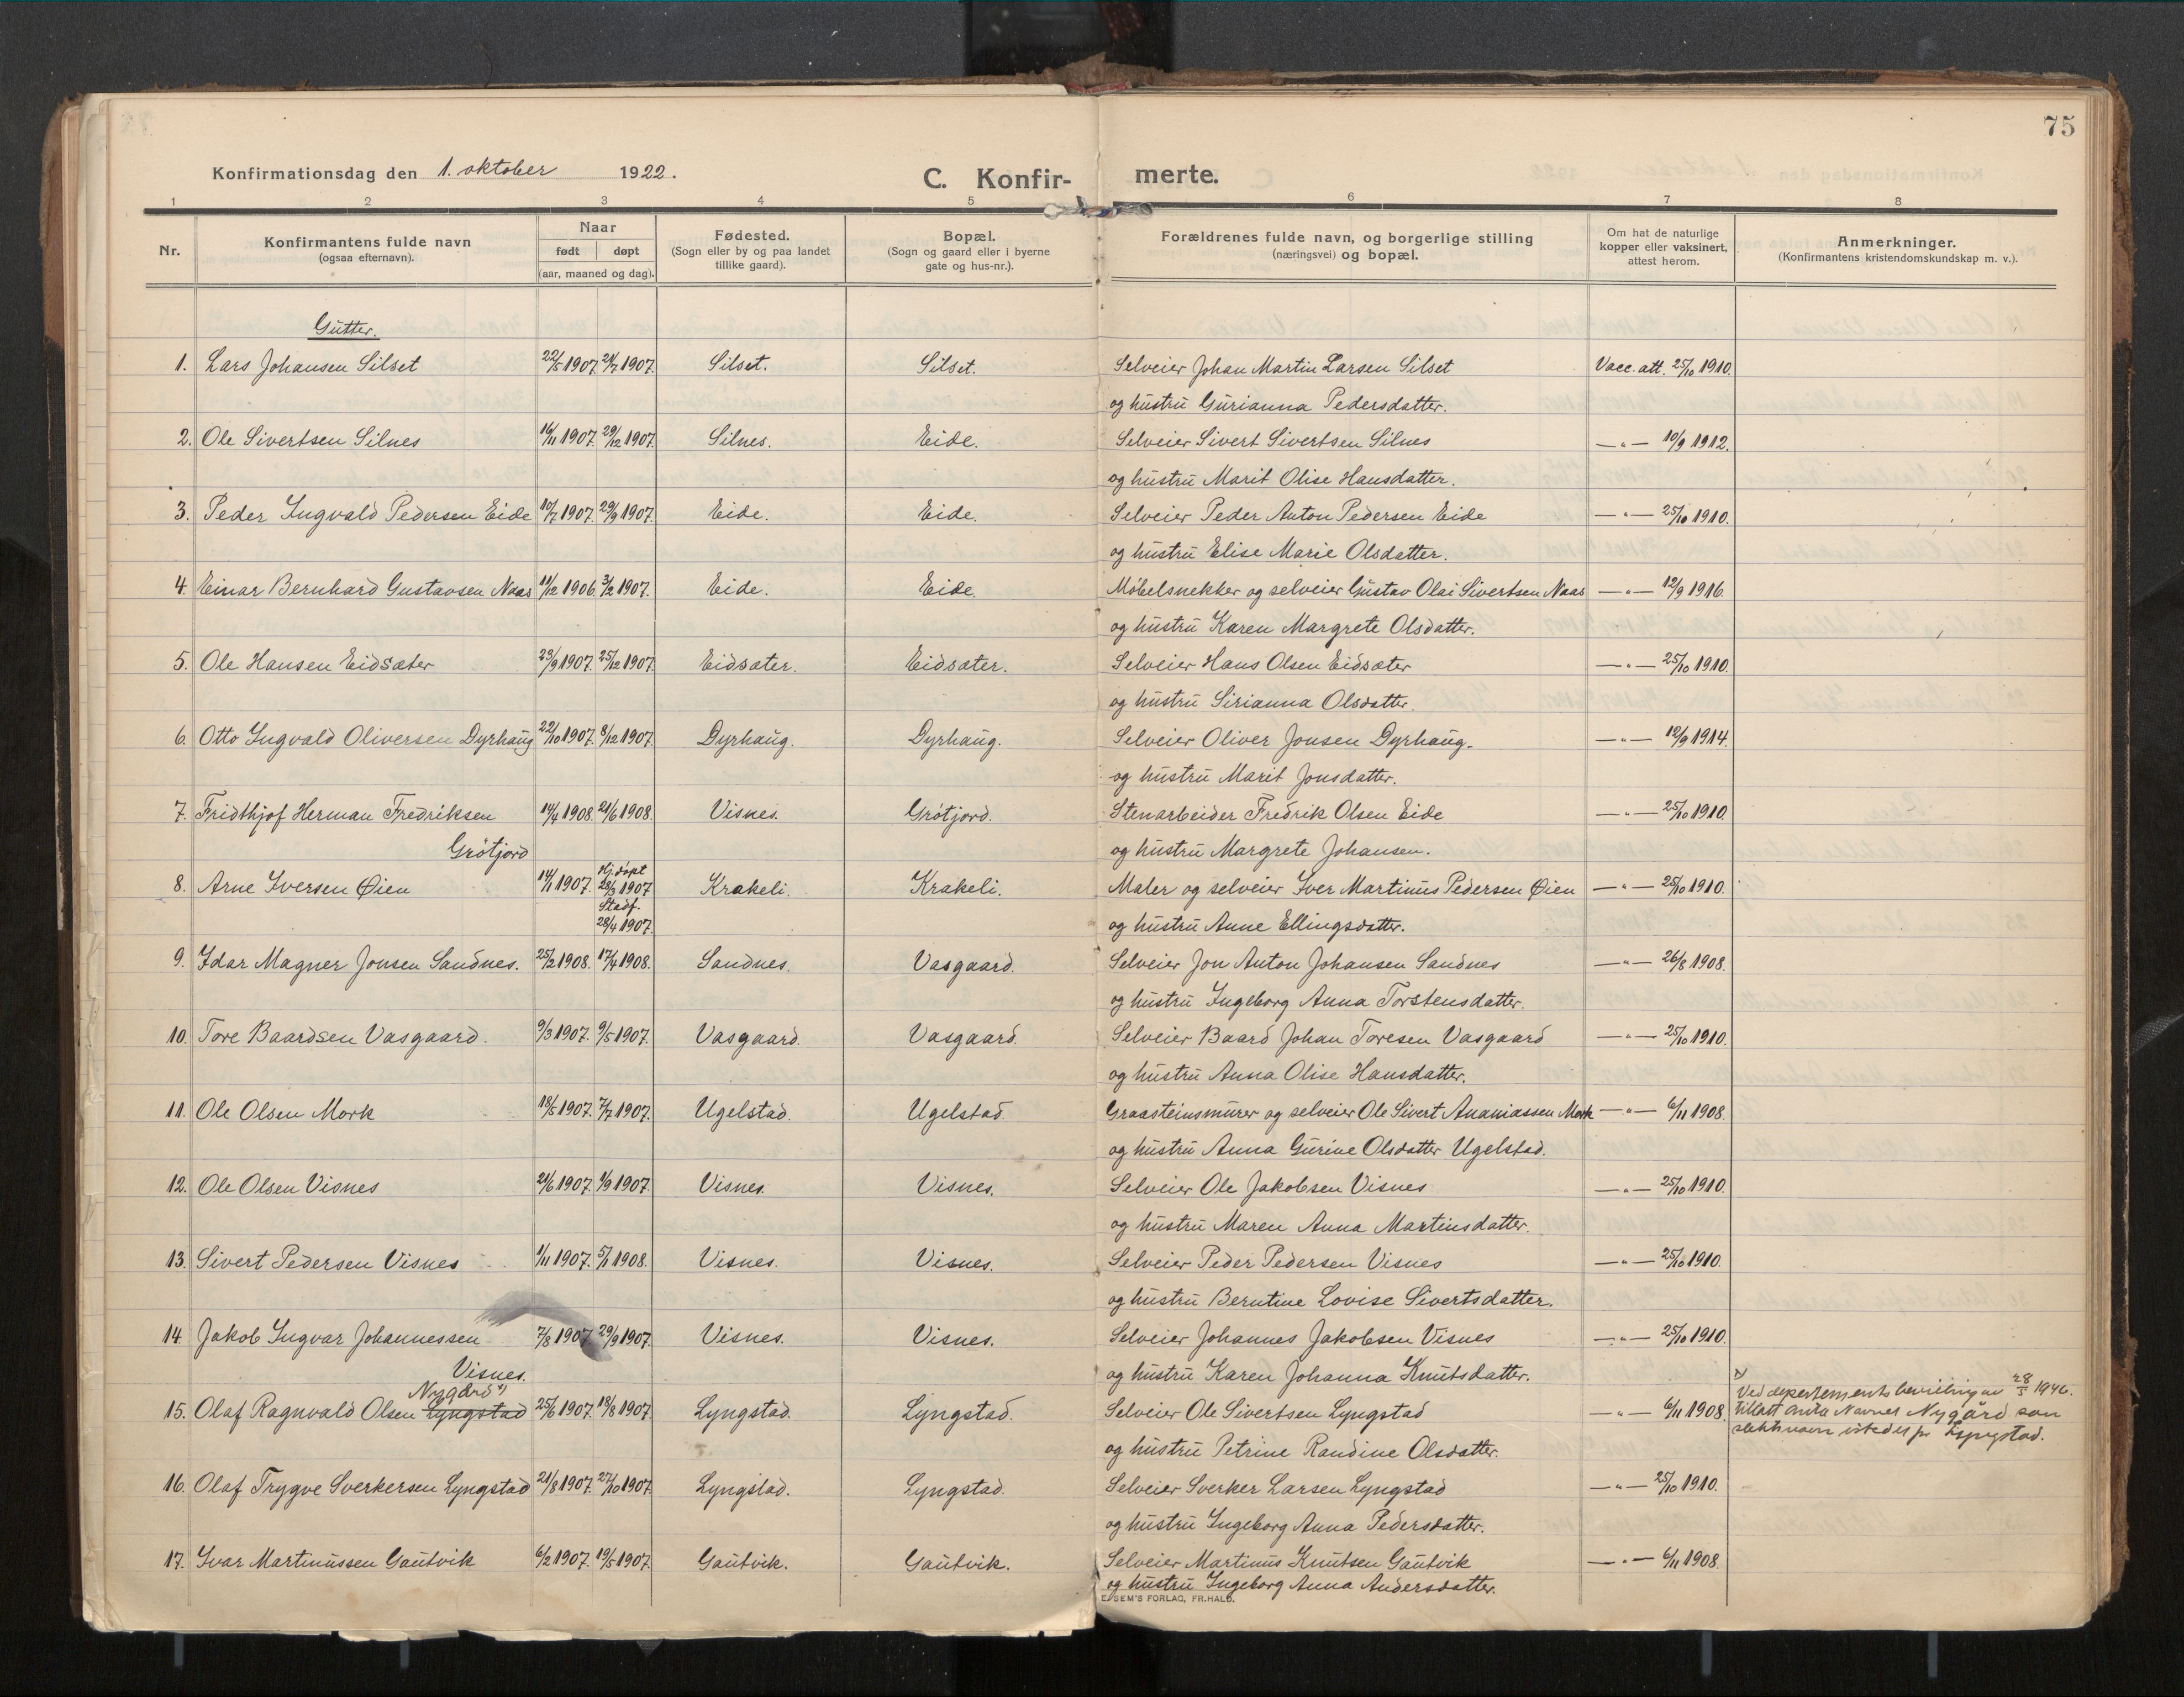 75
Konfirmationsdag den 1. oktober 1922.
C. Konfirmerte.
1 2 3 4 5 6 7 8
Nr. Konfirmantens fulde navn (ogsaa efternavn). Naar født døpt (aar, maaned og dag). Fødested. (Sogn eller by og paa landet tillike gaard). Bopæl. (Sogn og gaard eller i byerne gate og hus-nr.). Forældrenes fulde navn, og borgerlige stilling (næringsvei) og bopæl. Om hat de naturlige kopper eller vaksinert, attest herom. Anmerkninger. (Konfirmantens kristendomskundskap m. v.).
Gutter.
1. Lars Johansen Silset 22/5 1907. 21/7 1907. Silset. Silset. Selveier Johan Martin Larsen Silset Vacc. att. 25/10 1910.
og hustru Gurianna Pedersdatter.
2. Ole Sivertsen Silnes 16/11 1907. 29/12 1907. Silnes. Eide. Selveier Sivert Sivertsen Silnes —"— 10/9 1912.
og hustru Marit Olise Hansdatter.
3. Peder Ingvald Pedersen Eide 10/7 1907. 29/9 1907. Eide. Eide. Selveier Peder Anton Pedersen Eide —"— 25/10 1910.
og hustru Elise Marie Olsdatter.
4. Einar Bernhard Gustavsen Naas 11/12 1906. 3/2 1907. Eide. Eide. Møbelsnekker og selveier Gustav Olai Sivertsen Naas —"— 12/9 1916.
og hustru Karen Margrete Olsdatter.
5. Ole Hansen Eidsæter 23/9 1907. 25/12 1907. Eidsæter. Eidsæter. Selveier Hans Olsen Eidsæter —"— 25/10 1910.
og hustru Sirianna Olsdatter.
6. Otto Ingvald Oliversen Dyrhaug 22/10 1907. 8/12 1907. Dyrhaug. Dyrhaug. Selveier Oliver Jonsen Dyrhaug. —"— 12/9 1914.
og hustru Marit Jonsdatter.
7. Fridthjof Herman Fredriksen 14/4 1908. 21/6 1908. Visnes. Grøtjord. Stenarbeider Fredrik Olsen Eide —"— 25/10 1910.
Grøtjord og hustru Margrete Johansen.
8. Arne Iversen Øien 14/1 1907. Hj.døpt 28/3 1907 Stadf. 28/4 1907. Krakeli. Krakeli. Maler og selveier Iver Martinus Pedersen Øien —"— 25/10 1910.
og hustru Anne Ellingsdatter.
9. Idar Magner Jonsen Sandnes. 25/2 1908. 17/4 1908. Sandnes. Vasgaard. Selveier Jon Anton Johansen Sandnes —"— 26/8 1908.
og hustru Ingeborg Anna Torstensdatter.
10. Tore Baardsen Vasgaard. 9/3 1907. 9/5 1907. Vasgaard. Vasgaard. Selveier Baard Johan Toresen Vasgaard —"— 25/10 1910.
og hustru Anna Olise Hansdatter.
11. Ole Olsen Mork 18/5 1907. 7/7 1907. Ugelstad. Ugelstad. Graasteinsmurer og selveier Ole Sivert Ananiassen Mork —"— 6/11 1908.
og hustru Anna Gurine Olsdatter Ugelstad.
12. Ole Olsen Visnes 21/6 1907. 1/9 1907. Visnes. Visnes. Selveier Ole Jakobsen Visnes —"— 25/10 1910.
og hustru Maren Anna Martinsdatter.
13. Sivert Pedersen Visnes 1/11 1907. 5/1 1908. Visnes. Visnes. Selveier Peder Pedersen Visnes —"— 25/10 1910.
og hustru Berntine Lovise Sivertsdatter.
14. Jakob Ingvar Johannessen 7/8 1907 29/9 1907. Visnes. Visnes. Selveier Johannes Jakobsen Visnes —"— 25/10 1910.
Visnes. og hustru Karen Johanna Knutsdatter.
Nygård x)
15. Olaf Ragnvald Olsen Lyngstad 25/6 1907. 18/8 1907. Lyngstad. Lyngstad. Selveier Ole Sivertsen Lyngstad —"— 6/11 1908.
x) Ved departements bevilling av 28/5 1946.
tillatt anta navnet Nygård som
slektsnavn istedet for Lyngstad.
og hustru Petrine Randine Olsdatter.
16. Olaf Trygve Sverkersen Lyngstad 21/8 1907. 27/10 1907. Lyngstad. Lyngstad. Selveier Sverker Larsen Lyngstad —"— 25/10 1910.
og hustru Ingeborg Anna Pedersdatter.
17. Ivar Martinussen Gautvik 6/2 1907. 19/5 1907. Gautvik. Gautvik. Selveier Martinus Knutsen Gautvik —"— 6/11 1908.
og hustru Ingeborg Anna Andersdatter.
SEM'S FORLAG, FR.HALD.